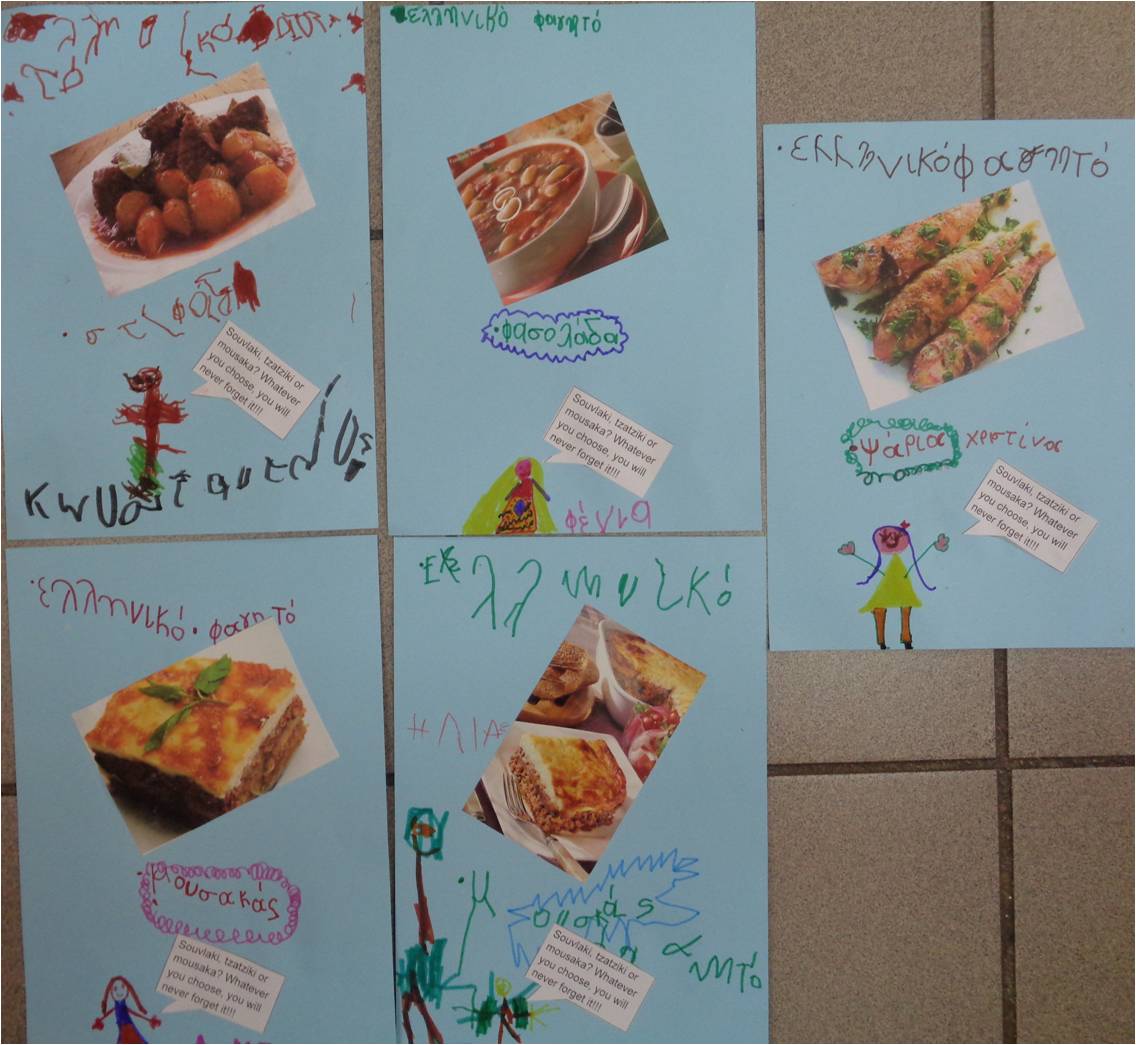 στιφάδο
Souvlaki, tzatziki or
mousaka? Whatever
you choose, you will
never forget it!!!
ελληνικό φαγητό
φασολάδα
Souvlaki, tzatziki or
mousaka? Whatever
you choose, you will
never forget it!!!
φέλια
ελληνικό φαγητό
ψάρια χριστίνα
Souvlaki, tzatziki or
mousaka? Whatever
you choose, you will
never forget it!!!
ελληνικό φαγητό
μουσακάς
Souvlaki, tzatziki or
mousaka? Whatever
you choose, you will
never forget it!!!
ΗΛΙΑΣ
Souvlaki, tzatziki or
mousaka? Whatever
you choose, you will
never forget it!!!